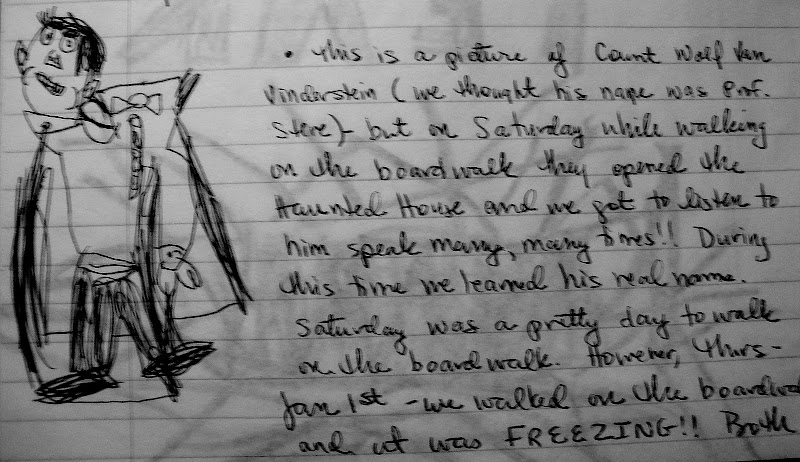 • This is a picture of Count Wolf Van
Vinderstein (we thought his name was Prof.
Steve) - but on Saturday while walking
on the boardwalk they opened the
Haunted House and we got to listen to
him speak many, many times!! During
this time we learned his real name.
Saturday was a pretty day to walk
on the boardwalk. However, Thurs-
Jan 1st - we walked on the boardwa
and it was FREEZING!! Both